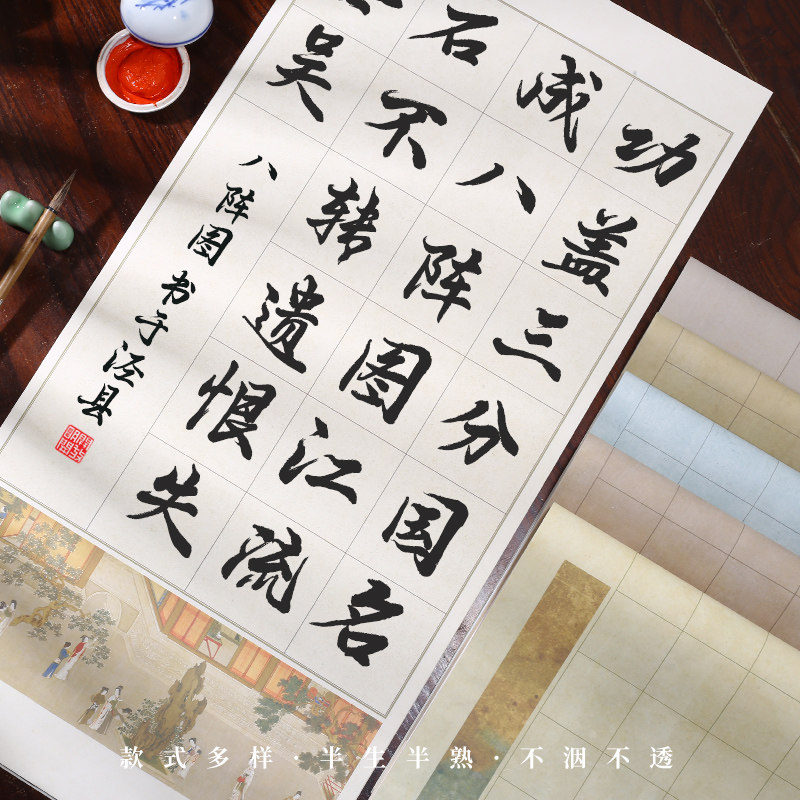 功盖三分国名
成八阵图江流
石不转遗恨失
吴
八阵图 书于泾县
款式多样·半生半熟·不洇不透